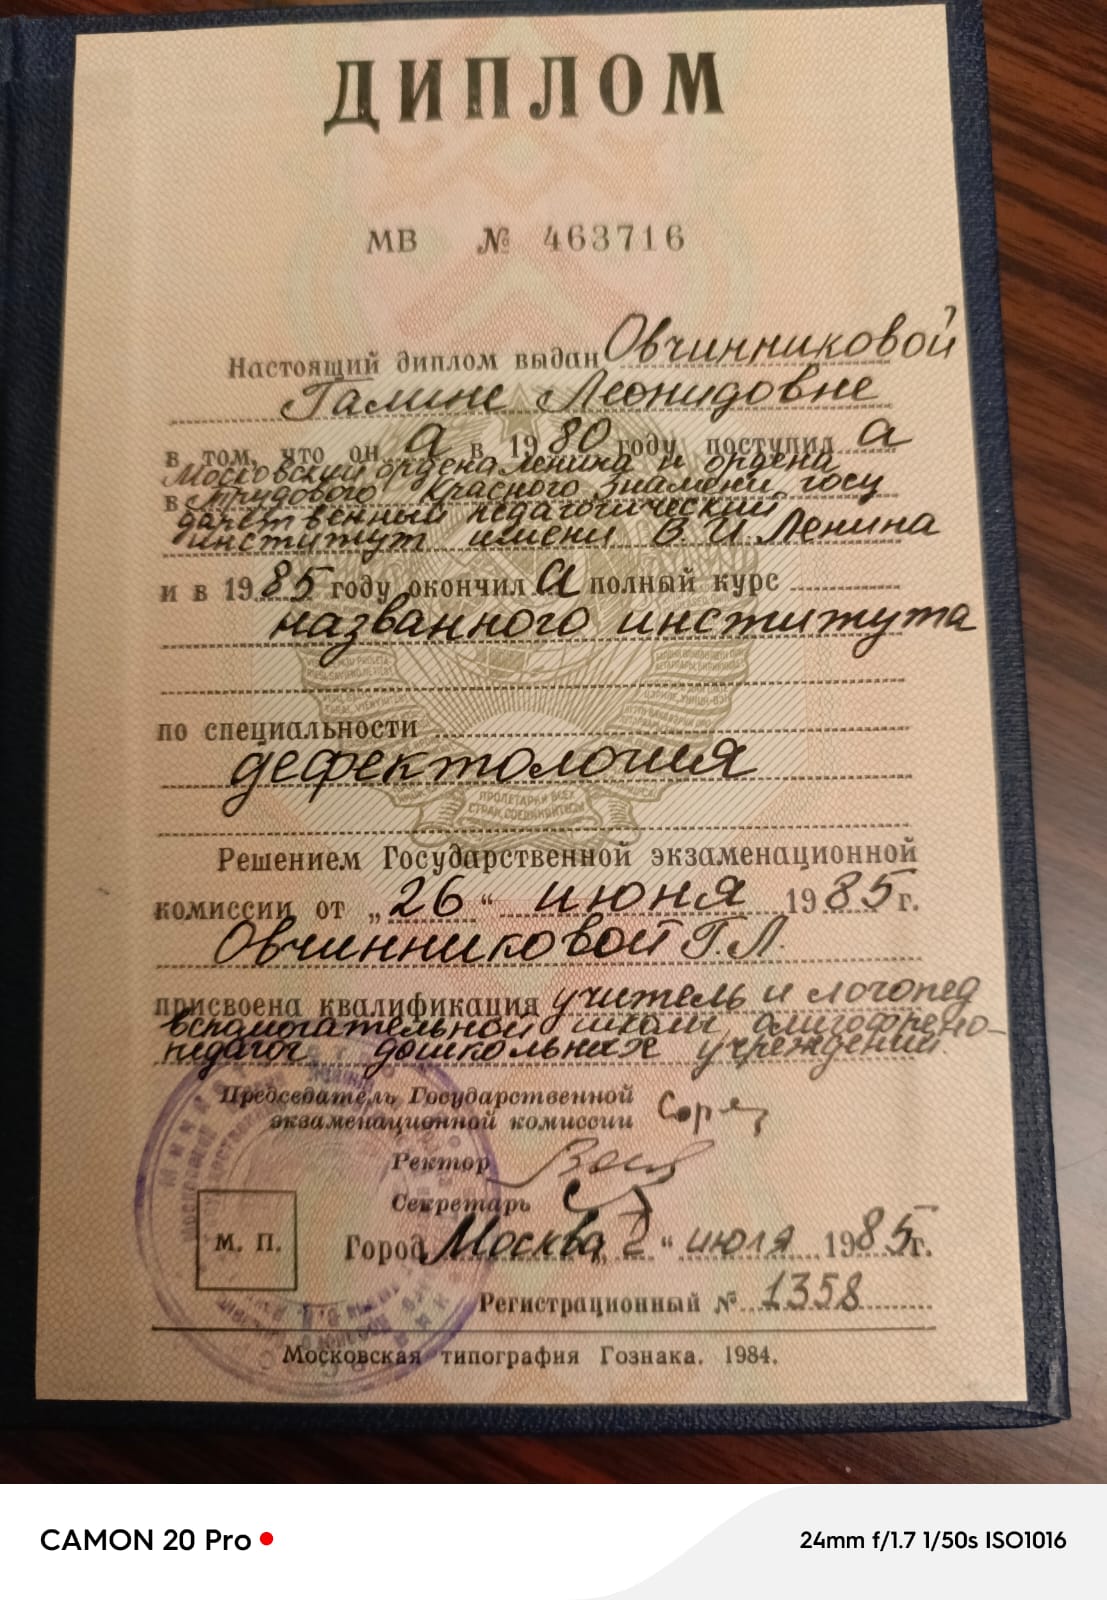 ДИПЛОМ
МВ № 463716
Настоящий диплом выдан Овчинниковой
Галине Леонидовне
в том, что он а в 1980 году поступил а
Московский ордена Ленина и ордена
в Трудового Красного Знамени госу
дарственный педагогический
институт имени В. И. Ленина
и в 1985 году окончил а полный курс
названного института
по специальности
дефектология
ПРОЛЕТАРИИ ВСЕХ
СТРАН, СОЕДИНЯЙТЕСЬ
Решением Государственной экзаменационной
комиссии от „26“ июня 1985 г.
Овчинниковой Г. Л.
присвоена квалификация учитель и логопед
вспомогательной школы, олигофрено-
педагог дошкольных учреждений.
Председатель Государственной
экзаменационной комиссии
Ректор
Секретарь
М. П.
Город Москва „2“ июля 1985 г.
Регистрационный № 1358
Московская типография Гознака. 1984.
CAMON 20 Pro
24mm f/1.7 1/50s ISO1016